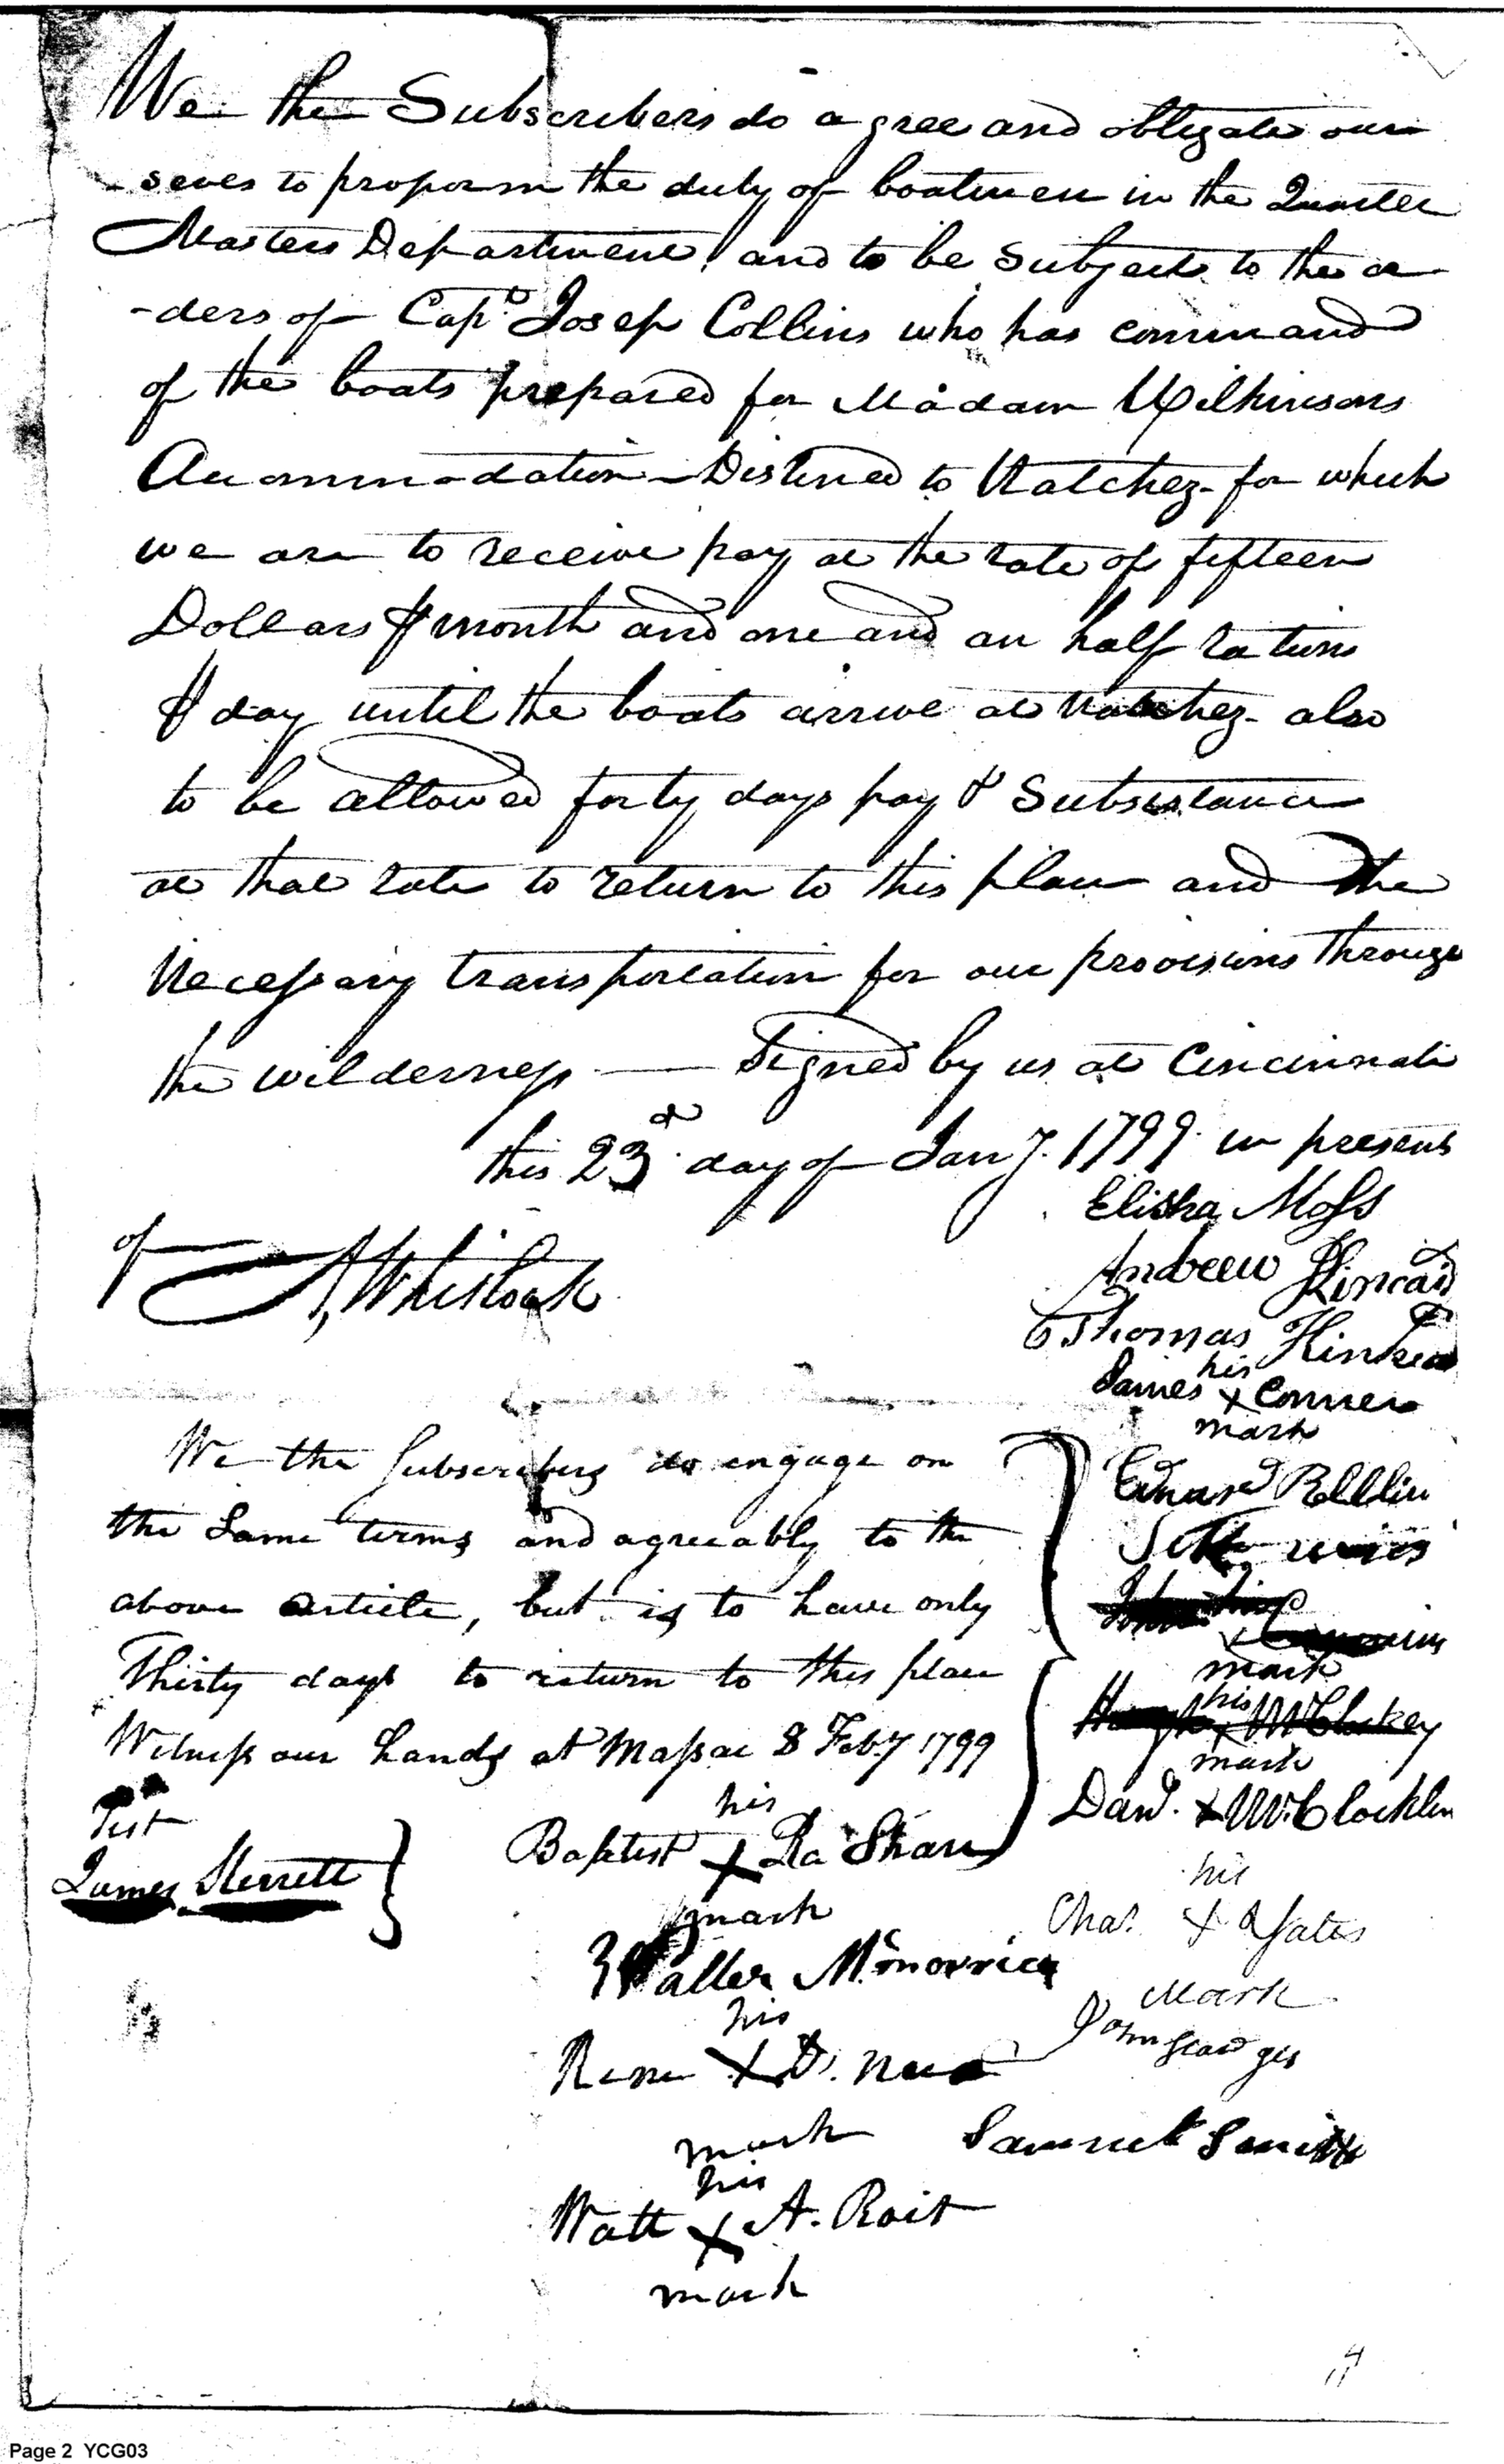 We the Subscribers do agree and obligate our
seves to proporm the duty of boatmen in the Quarter
Masters Department, and to be Subject to the or
-ders of Capt. Josep Collins who has command
of the boats prepared for Madam Wilkinsons
Accommodation Distined to Natchez for which
we are to receive pay at the rate of fifteen
Dollars ⅌ month and one and an half rations
⅌ day until the boats arrive at Natchez also
to be allowed forty days pay & Subsistance
at that rate to return to this place and the
Necessary transportation for our provisions through
the wilderness — Signed by us at Cincinnati
this 23d. day of Jany. 1799 in presens
of A Whitlock
Elisha Moss
Andrew Kincaid
Thomas Kinkead
his
James x Conner
mark
We the Subscribers do engage on
the Same terms and agreeably to the
above article, but is to have only
Thirty days to return to this place
Witness our hands at Massac 8 Feby 1799
Test
James Sterrett
Edward
Seth
John
x
mark
his
Hugh x McClockey
mark
Dand. x McClocklin
his
Chas. x Yates
Mark
John
Samuel Smith
his
Baptist x La Shan
mark
Waller
his
Rene x D.
mark
his
Watt x A. Roit
mark
4
11
Page 2 YCG03